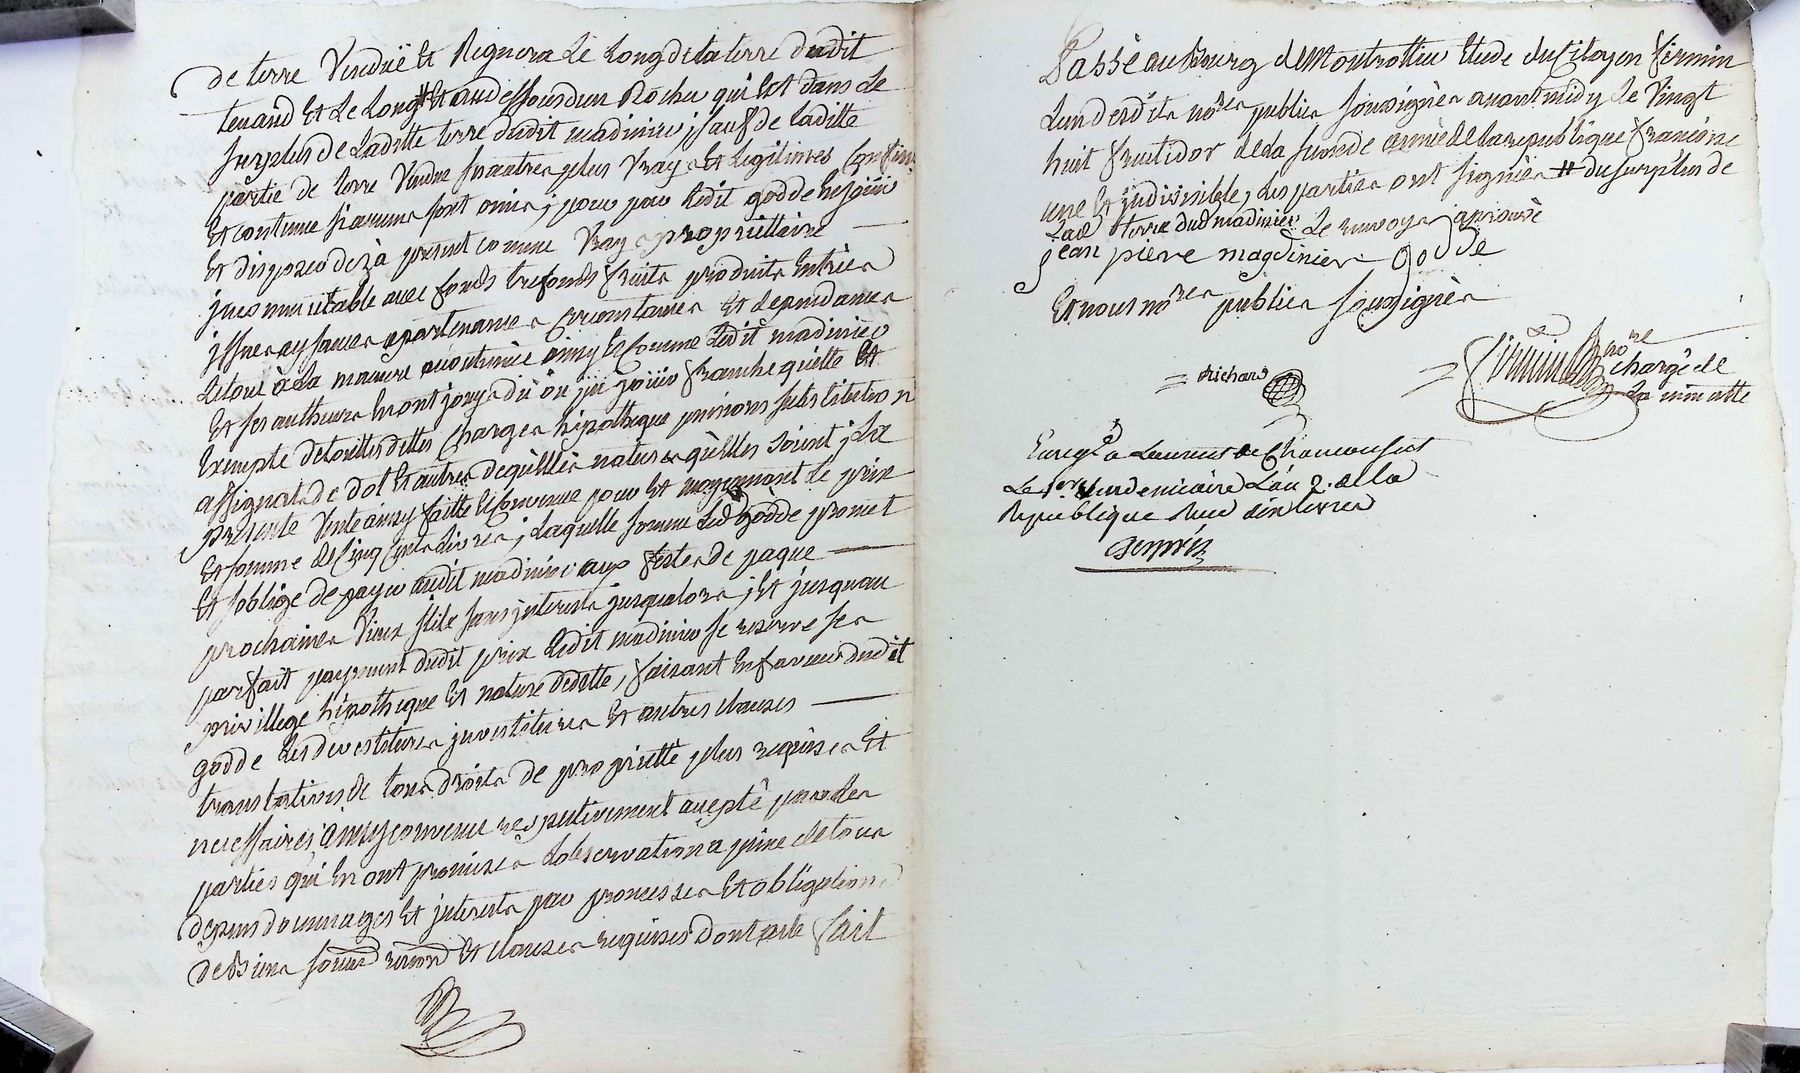 de terre Venduë Et Regnera Le Long de la terre dudit
tenand Et Le Long # Et audessous dun Rocher qui Est dans Le
surplus de Laditte terre dudit madinier ; sauf de laditte
partie de terre Vendue ses autres plus Vrays Et Legitimes Confins
Et contenue si aucuns sont omis ; pour par Ledit godde En jouir
Et disposer dezà present comme Vray proprietaire
jncommutable avec fonds trefonds fruits produits Entrées
jssues aysances apartenances circonstances Et dependances
Letout à La maniere acoutumée ainsy Et comme Ledit madinier
Et ses autheurs En ont jouy a dû ou pû jouir franche quitte Et
Exempte detouttes dettes Charges hipotheque pensions substitution
assignat de dot Et autres dequelles natures qu'elles soient ; La
presente Vente ainsy faitte Et Convenue pour Et moyennant Le prix
Et somme de Cinq Cents Livres ; Laquelle somme Led godde promet
Et soblige de payer audit madinier aux festes de paque
prochaines Vieux stile sans jnterests jusqualors ; Et jusquau
parfait payement dudit prix Ledit madinier se reserve ses
privillege hipotheque Et nature de dette, faisant En faveur dudit
godde Les devestitures jnvestitures Et autres clauses
translatives de tous droits de proprietté plus requises Et
necessaires ainsy convenu respectivement accepté par Les
parties qui En ont promises Lobservation a peine detous
depens dommages Et jnterests par promesses Et obligations
de Biens soumis renon Et clauses requises dont acte fait
Passé au Bourg de Montrottier Etude du Citoyen firmin
Lun desdits nores publics soussignés avant midy Le Vingt
huit fructidor de la seconde année de la republique francoise
une Et jndivisible, Les parties ont signées # du surplus de
Lad terre dud madinier Le renvoy aprouvé
jean pière magdinier godde
Et nous nores publics soussignés
= Richard
= firmin nore
chargé de
La minutte
Enregé a Laurent de Chamousset
Le 1er Vendemiaire L'an 2. de la
Republique Recu dix Livres